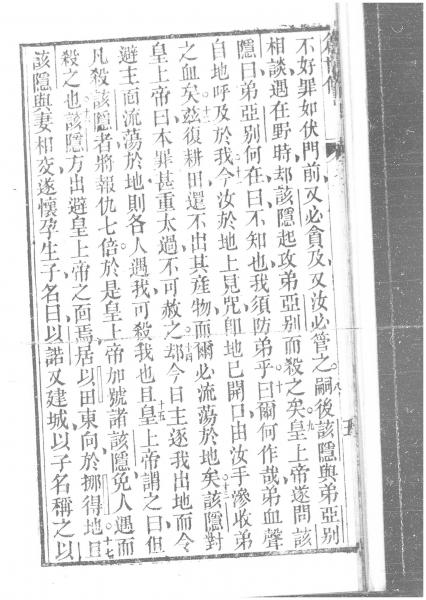 不好罪如伏門前又必貪及又汝必管之八嗣後該隱與弟亞別
相談遇在野時却該隱起攻弟亞別而殺之矣九皇上帝遂問該
隱曰弟亞別何在曰不知也我須防弟乎十曰爾何作哉弟血聲
自地呼及於我十一今汝於地上見咒卽地已開口由汝手滲收弟
之血矣十二玆復耕田還不出其產物而爾必流蕩於地矣十三該隱對
皇上帝曰本罪甚重太過不可赦之十四却今日主逐我出地而令
避主面流蕩於地則各人遇我可殺我也十五且皇上帝謂之曰但
凡殺該隱者將報仇七倍於是皇上帝加號諸該隱免人遇而
殺之也十六該隱方出避皇上帝之面焉居以田東向於挪得地十七且
該隱與妻相交遂懷孕生子名曰以諾又建城以子名稱之以